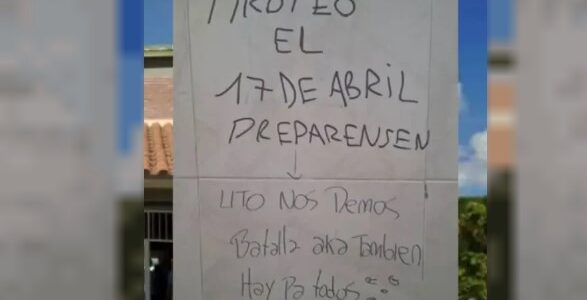 TIROTEO
EL
17 DE ABRIL
PREPARENSEN
LITO NOS Demos
Batalla aka Tambien
Hay Pa todos...